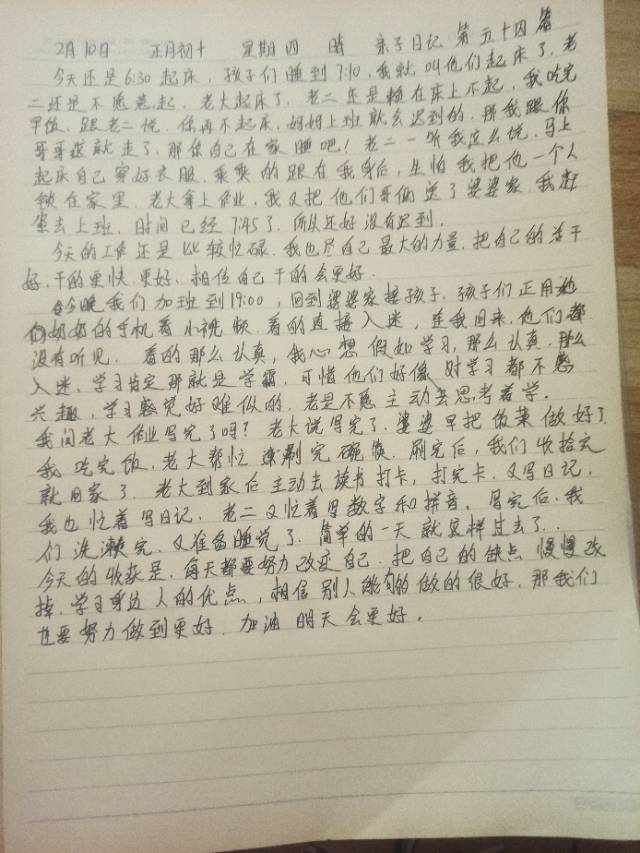 2月10日 正月初十 星期四 晴 亲子日记 第五十四篇
今天还是6:30起床,孩子们睡到7:10,我就叫他们起床了,老
二还是不愿意起,老大起床了,老二还是赖在床上不起,我吃完
早饭,跟老二说,你再不起床,妈妈上班就会迟到的,那我跟你
哥哥就走了,那你自己在家睡吧!老二一听我这么说,马上
起床自己穿好衣服,乖乖的跟在我身后,生怕我把他一个人
锁在家里,老大拿上作业,我又把他们哥俩送了婆婆家,我赶
紧去上班,时间已经7:45了,所以还好没有迟到。
今天的工作还是比较忙碌,我也尽自己最大的力量,把自己的活干
好,干的更快更好,相信自己干的会更好.
今晚我们加班到19:00,回到婆婆家接孩子,孩子们正用他
们奶奶的手机看小视频,看的直接入迷,连我回来,他们都
没有听见,看的那么认真,我心想假如学习,那么认真,那么
入迷,学习肯定那就是学霸,可惜他们好像对学习都不感
兴趣,学习感觉好难似的,老是不愿主动去思考着学。
我问老大作业写完了吗?老大说写完了,婆婆早把饭菜做好了
我吃完饭,老大帮忙涮完碗筷,刷完后,我们收拾完
就回家了,老大到家后主动去读书打卡,打完卡,又写日记,
我也忙着写日记,老二又忙着写数字和拼音,写完后,我
们洗漱完,又准备睡觉了,简单的一天就这样过去了..
今天的收获是,每天都要努力改变自己,把自己的缺点慢慢改
掉,学习身边人的优点,相信别人能够做的很好,那我们
也要努力做到更好,加油明天会更好。